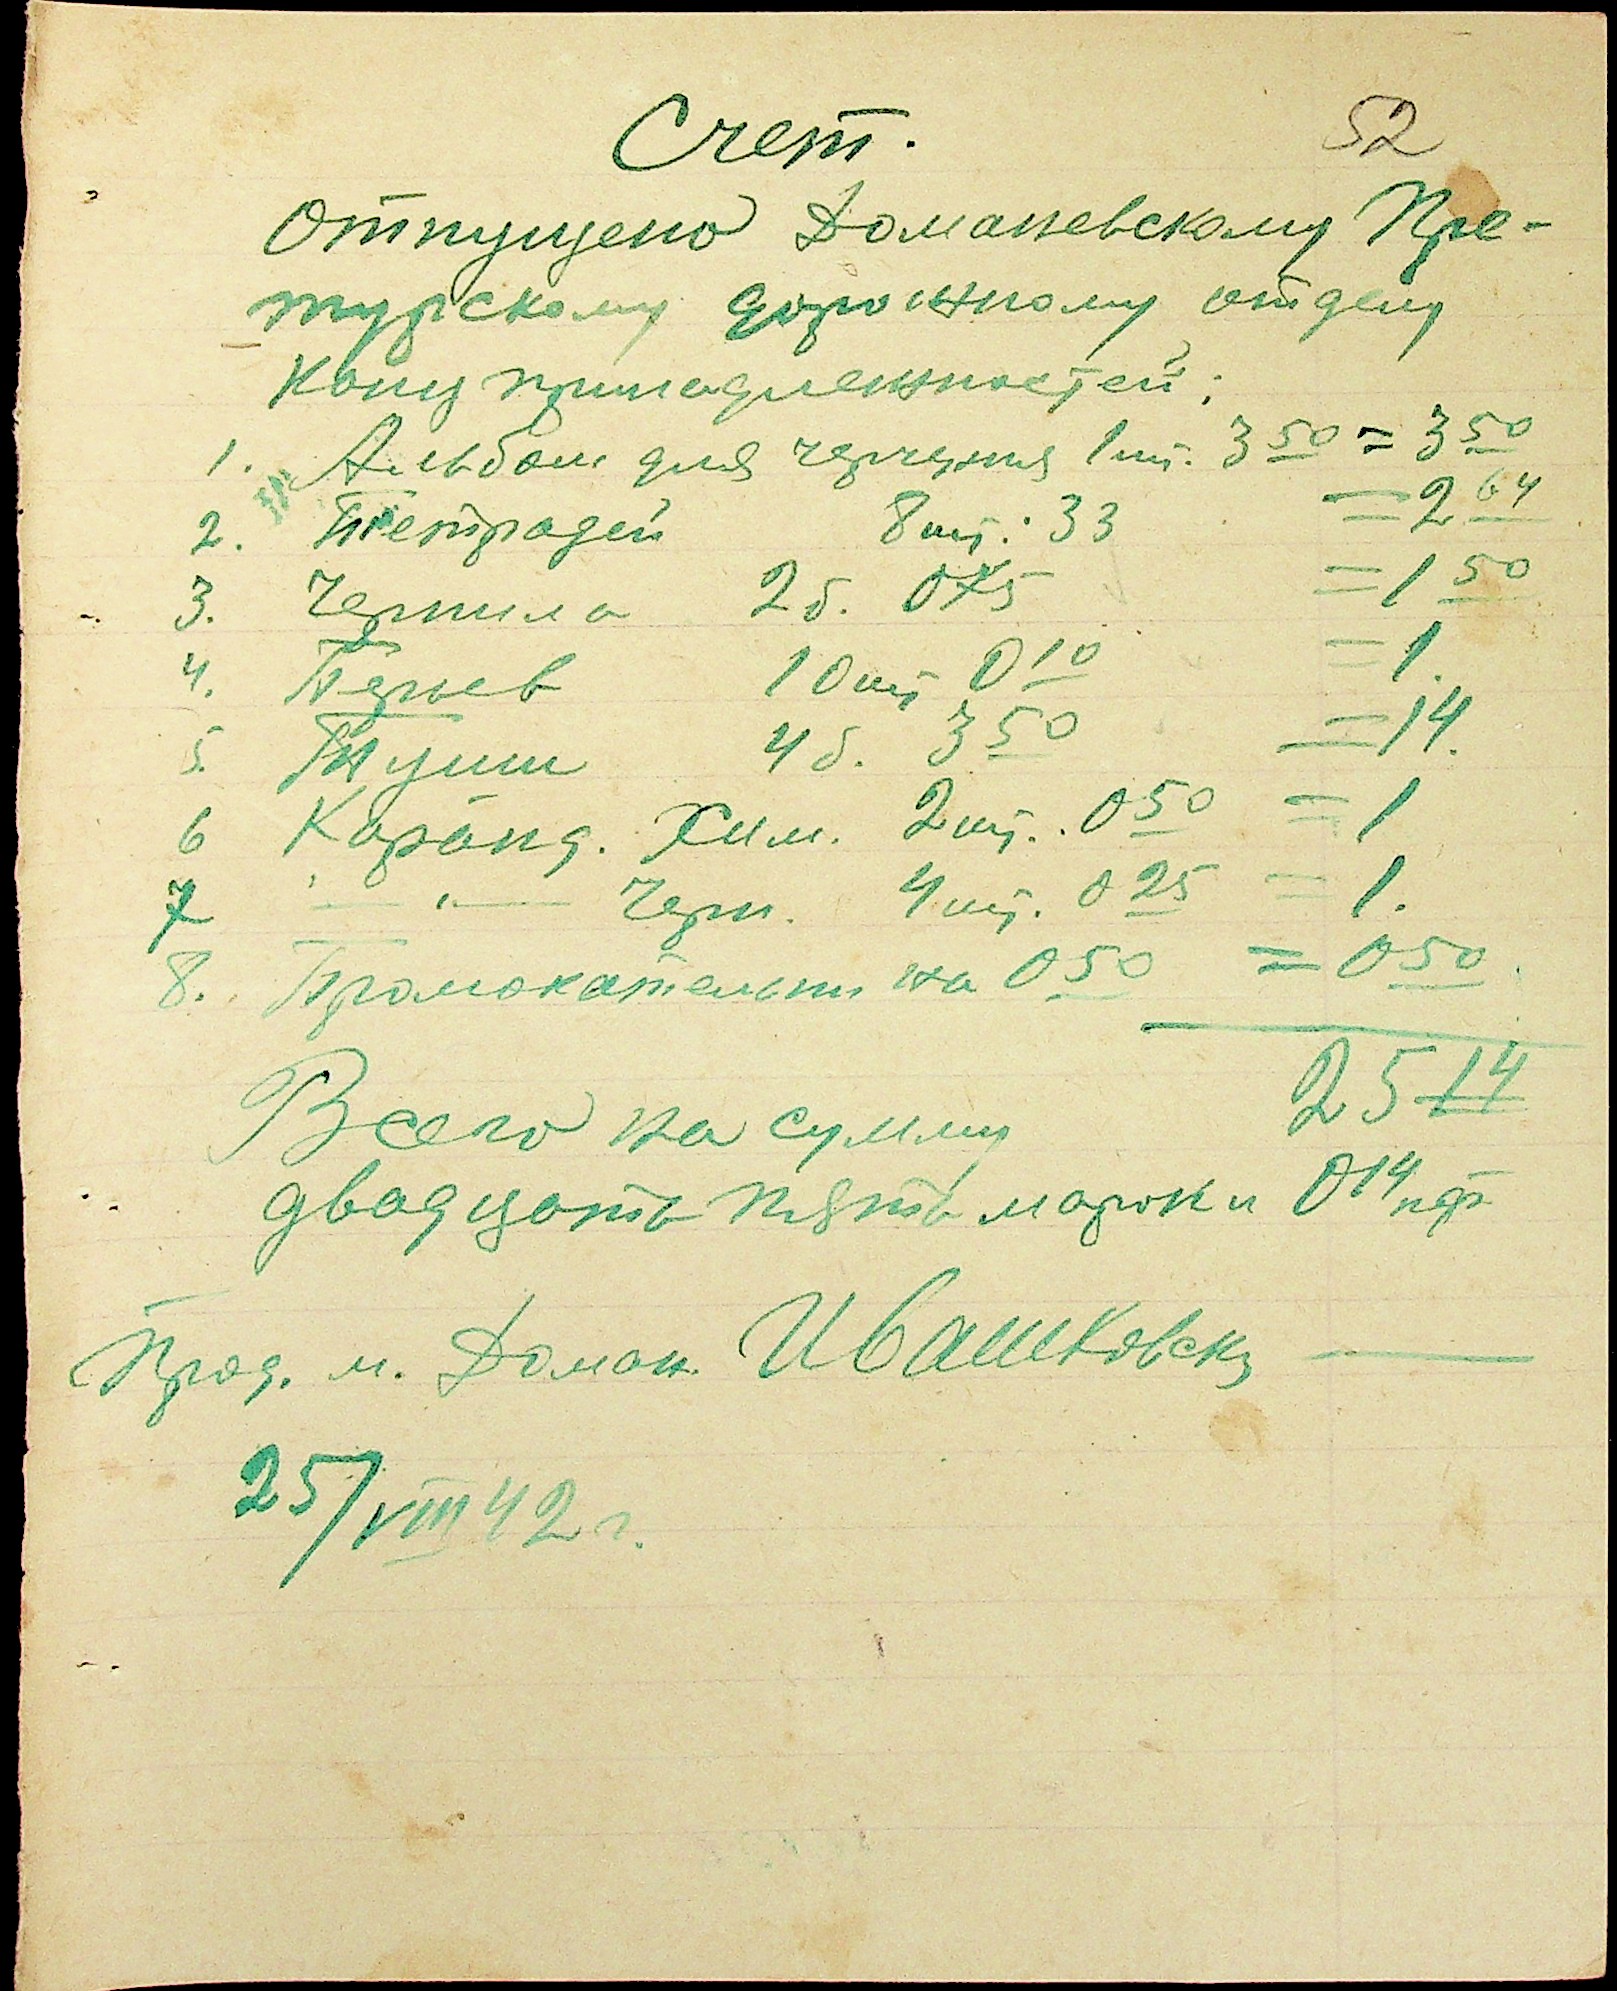 52
Счет.
Отпущено Доманевскому Пре-
турскому дорожному отделу
Канц принадлежностей:
1. Альбом для черчения 1шт. 3 50 = 3 50
2. Тетрадей 8шт. 33 = 2 64
3. Чернила 2б. 075 = 1 50
4. Перьев 10шт 0 10 = 1.
5. Туши 4б. 3 50 = 14.
6 Каранд. Хим. 2шт. 0 50 = 1
7 — " — Черн. 4шт. 0 25 = 1.
8. Промокательн на 0 50 = 0 50
25 14
Всего на сумму
двадцать пять марок и 0 14 пф
Прод. м. Доман. Ивашковск
25/VIII 42 г.